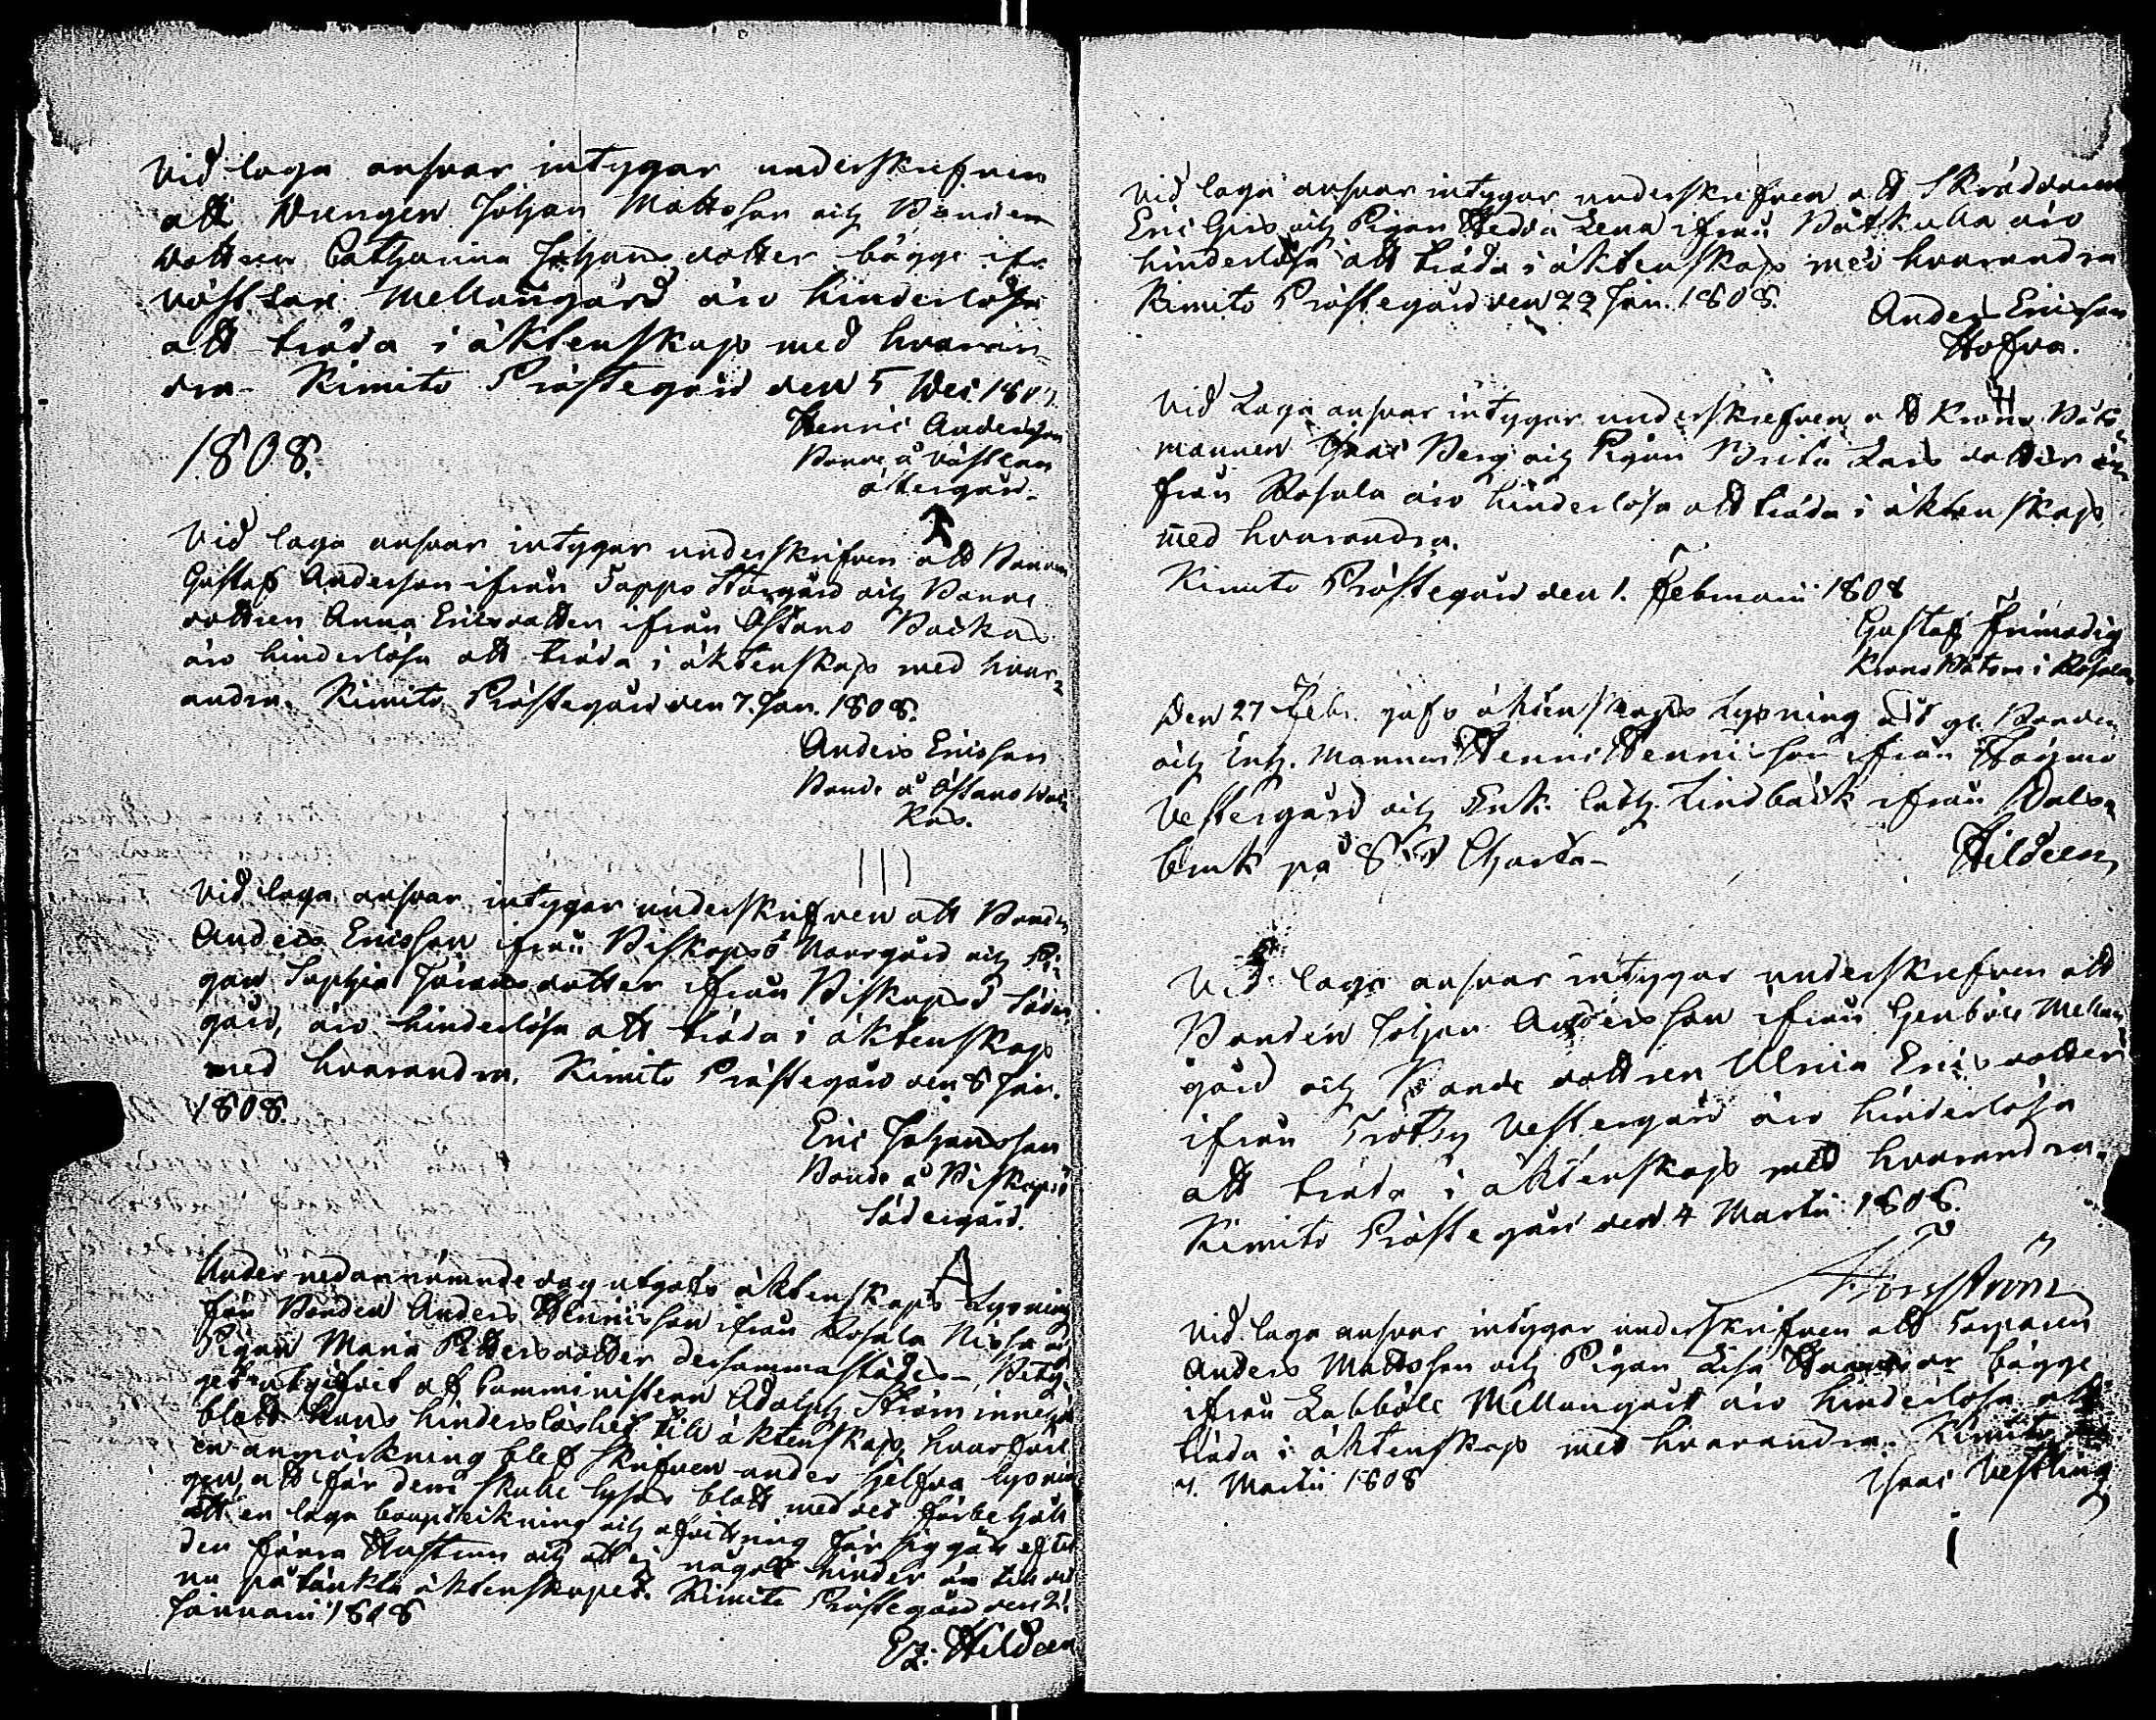 Vid laga ansvar intygar underskrefven
att Drengen Johan Mattsson och Bonde
dottren Catharina Johansdotter bägge ifr.
Västlax Mellangård äro hinderlösa
att träda i äktenskap med hvaran-
dra. Kimito Prästegård den 5 Dec. 1807.
Henric Andersson
Bonde å Västlax
åkergård.
1808.
Vid laga ansvar intygar underskrifven att Bonden
Gustaf Andersson ifrån Tappo Storgård och Bonde
dottren Anna Ericsdotter ifrån Östanå Backas
äro hinderlösa att träda i äktenskap med hvar-
andra. Kimito Prästegård den 7. Jan. 1808.
Anders Ericsson
Bonde å Östanå Bac-
kas.
Vid laga ansvar intygar underskrifven att Bonden
Anders Ericsson ifrån Biskopsö Norrgård och Pi-
gan Sophia Göransdotter ifrån Biskopsö Söder
gård, äro hinderlösa att träda i äktenskap
med hvarandra. Kimito Prästegård den 8 Jan.
1808.
Eric Johansson
Bonde å Biskopsö
Södergård.
Under nedannämnde dag utgafs äktenskaps Lysning
för Bonden Anders Hennicsson ifrån Rosala Nissas och
Pigan Maria Pettersdotter dersammastädes. Bety-
get utgifvet af Comministern Adolph Ström innehöll
blott hans hinderslöshet till äktenskap, hvarföre
en anmärkning blef skrifven under sjelfva lysnin
gen, att för dem skulle lysas blott med det förbehåll
att en laga bouptekning och afvittring för sig går efter
den förra Hustrun och att ej något hinder är till det
nu påtänkta äktenskapet. Kimito Prästegård den 21
Januarii 1808
Ez: Hildeen
Vid laga ansvar intygar underskrefven att Skräddaren
Eric Gris och Pigan Hedda Lena ifrån Båtkulla äro
hinderlösa att träda i äktenskap med hvarandra
Kimito Prästegård den 22 Jan. 1808.
Anders Ericsson
Hofva.
Vid Laga ansvar intygar underskrefven att Krono Båts-
mannen Isaac Berg och Pigan Brita Lars dotter
från Rosala äro hinderlösa att träda i äktenskap
med hvarandra.
Kimito Prästegård den 1. Februarii 1808
Gustaf Frimodig
Krono Båtsm. i Rosala
Den 27 Febr. gafs äktenskaps Lysning åt gl. Bonden
och Enk. Mannen Henric Hennicsson ifrån Högmo
Vestergård och Enk. Cath. Lindbäck ifrån Dals-
bruk på 8 Charta.
Hildeen
Vid laga ansvar intygar underskrefven att
Bonden Johan Andersson ifrån Genböle Mellan-
gård och Bonde dottren Ulrica Erics dotter
ifrån Trotby Vestergård äro hinderlösa
att träda i äktenskap med hvarandra.
Kimito Prästegård den 4 Martii 1808.
Vid laga ansvar intygar underskrifven att Torparen
Anders Mattsson och Pigan Lisa bägge
ifrån Labböle Mellangård äro hinderlösa att
träda i äktenskap med hvarandra. Kimito
7. Martii 1808
Isaac Vestling